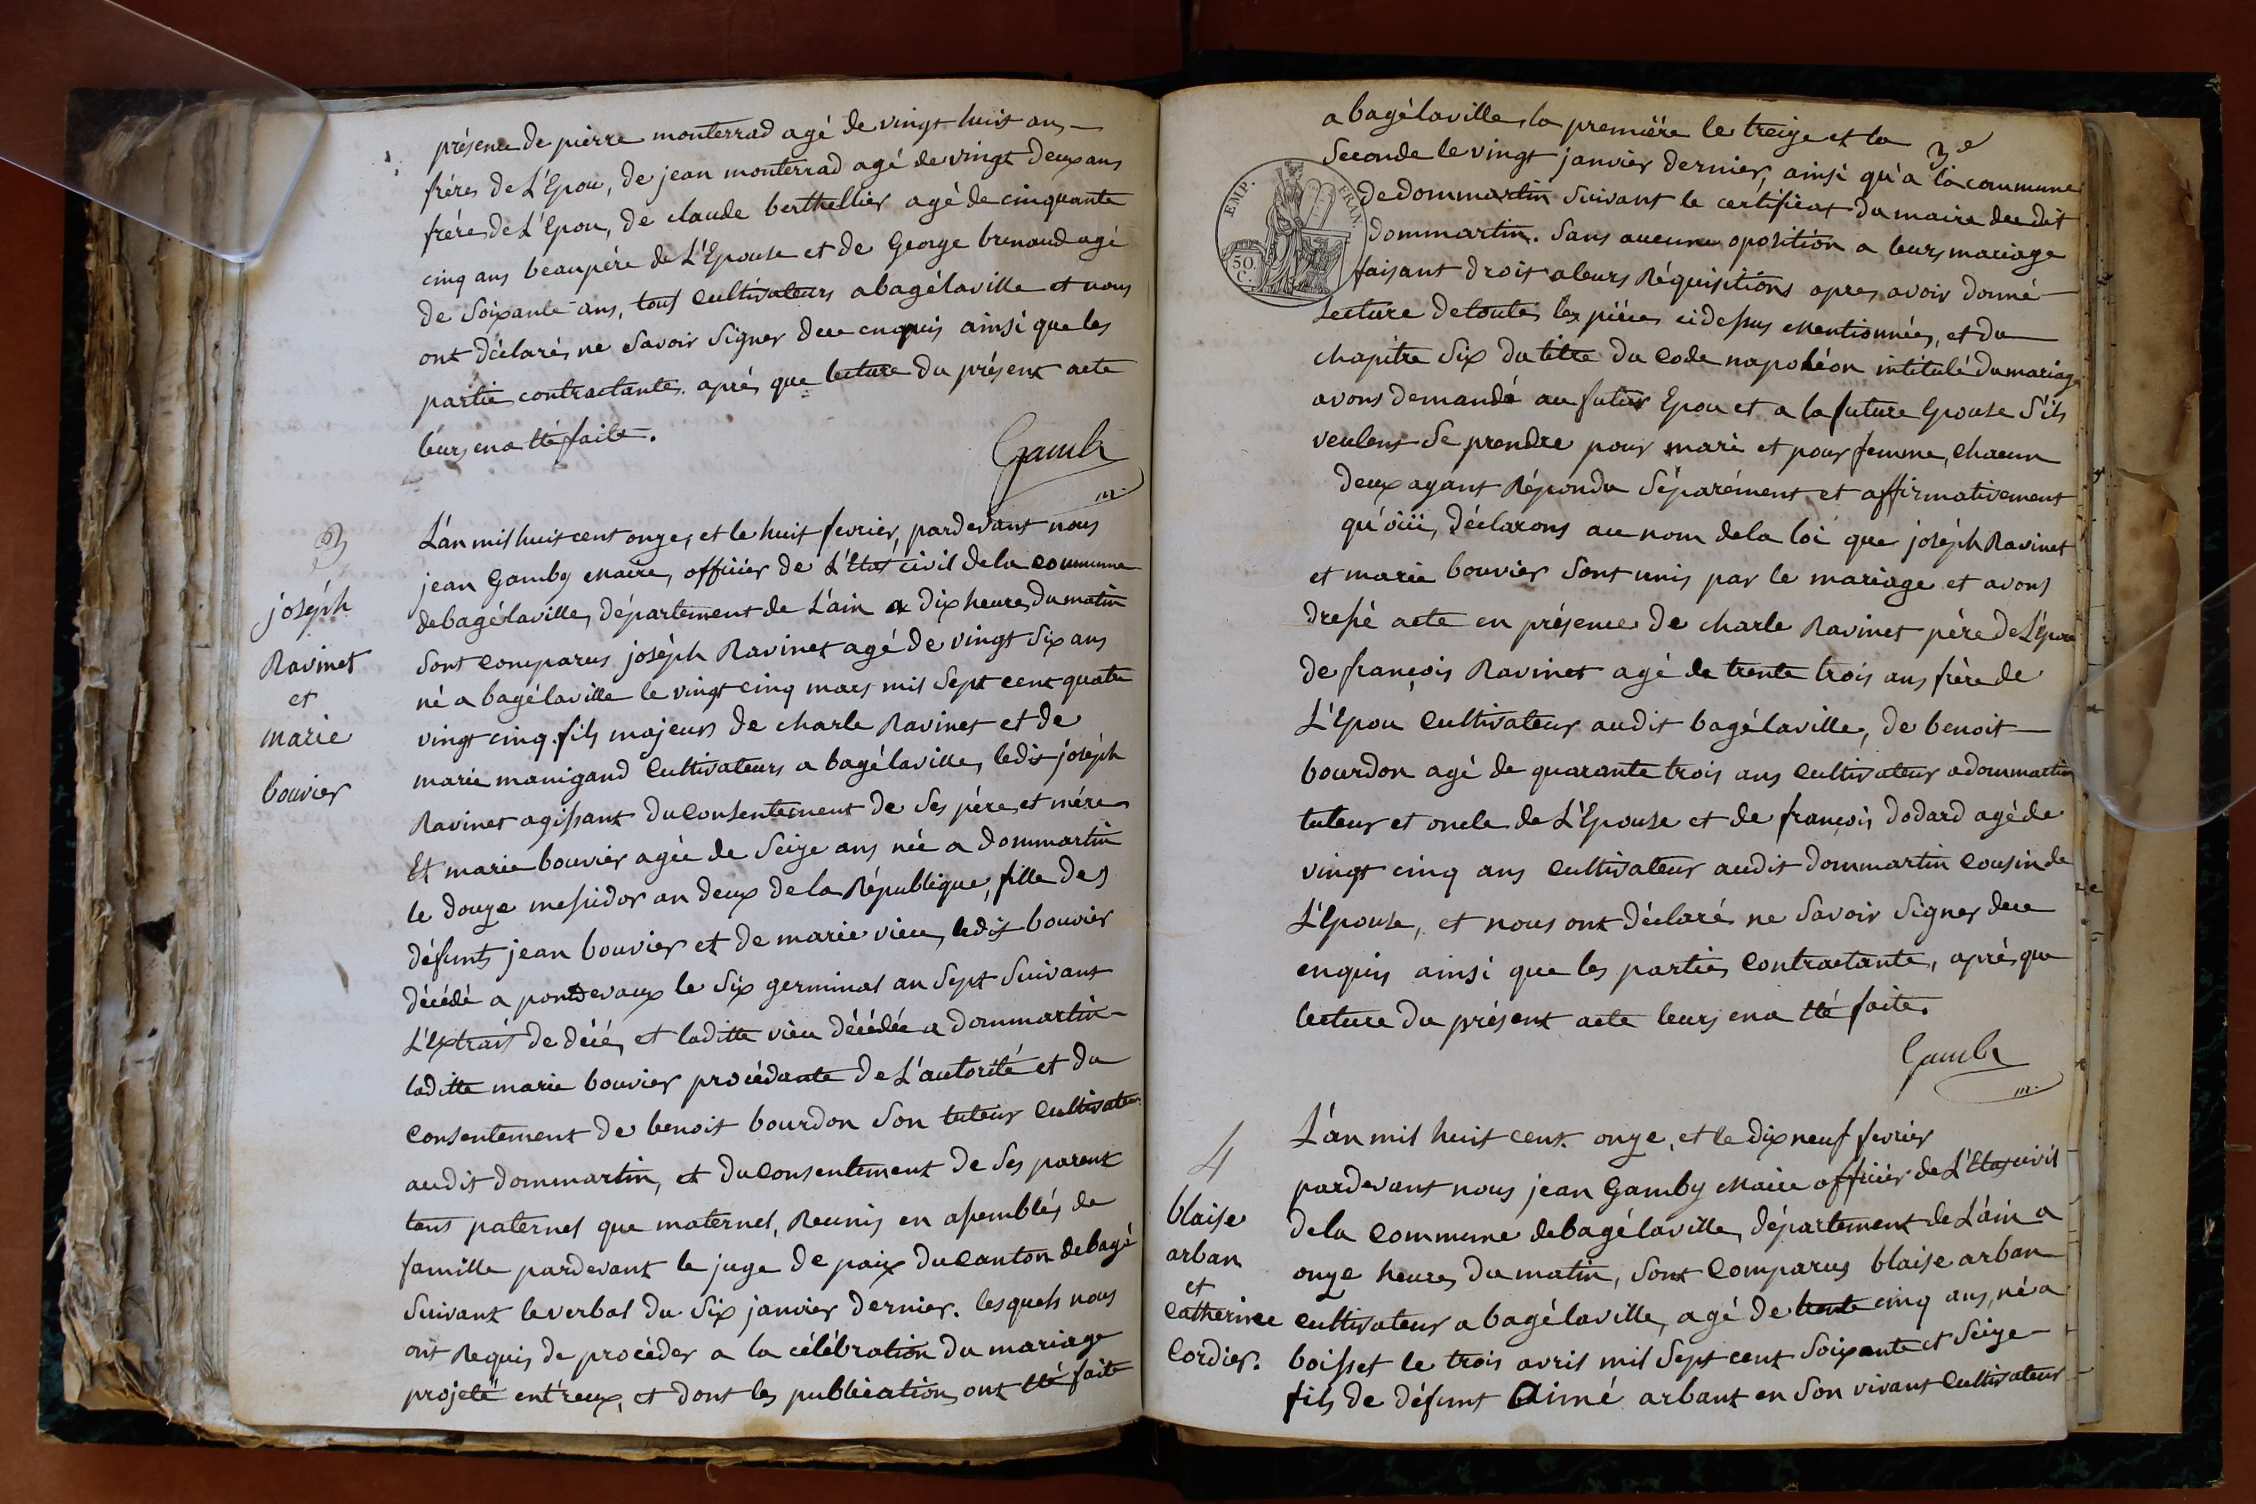 présence de pierre monterrad agé de vingt huit ans
fréres de L'Epou, de jean monterrad agé de vingt deux ans
frére de L'Epou, de claude berthellier agé de cinquante
cinq ans beaupére de L'Epouse et de George brenaud agé
de Soixante ans, tous Cultivateurs a bagélaville et nous
ont déclarés ne Savoir Signer de ce enquis ainsi que les
partie contractantes. aprés que lecture du présent acte
leurs en a été faite.
Gamby
m.
3
joséph
Ravinet
et
marie
bouvier
L'an mil huit cent onze, et le huit fevrier, pardevant nous
jean Gamby Maire, officier de L'Etat civil de la commune
de bagélaville, département de L'ain a dix heures du matin
Sont comparus joséph Ravinet agé de vingt Six ans
né a bagélaville le vingt cinq mars mil Sept cent quatre
vingt cinq. fils majeurs de charle Ravinet et de
marie manigand Cultivateurs a bagélaville, ledit joséph
Ravinet agissant du consentement de Ses pére et mére
Et marie bouvier agée de Seize ans née a dommartin
le douze messidor an deux de la République, fille des
défunts jean bouvier et de marie vieu, ledit bouvier
décédé a pontdevaux le Six germinal an Sept Suivant
L'Extrait de décé, et laditte vieu décédée a dommartin
laditte marie bouvier procédante de L'autorité et du
Consentement de benoit bourdon Son tuteur Cultivateur
audit dommartin, et du consentement de Ses parent
tant paternel que maternel, Reunis en assemblés de
famille pardevant le juge de paix du Canton de bagé
Suivant le verbal du Six janvier dernier. lesquels nous
ont Requis de procéder a la célébration du mariage
projeté entreux, et dont les publication ont été faite
3e
a bagélaville, la premiére le treize et la
Seconde le vingt janvier dernier, ainsi qu'a la commune
de dommartin Suivant le certificat du maire du dit
dommartin. Sans aucune oposition a leurs mariage
faisant droit a leurs Réquisitions apres avoir donné
Lecture de toutes les piéces cidessus Mentionnées, et du
chapitre Six du titre du Code napoléon intitulé du mariage
avons demandé au futur Epou et a la future Epouse S'ils
veulent Se prendre pour mari et pour femme, Chacun
deux ayant Répondu Séparément et affirmativement
qu'oüi, déclarons au nom de la loi que joséph Ravinet
et marie bouvier Sont unis par le mariage et avons
dressé acte en présence de charle Ravinet pére de L'Epou
de françois Ravinet agé de trente trois ans frère de
L'Epou Cultivateur audit bagélaville, de benoit
bourdon agé de quarante trois ans Cultivateur a dommartin
tuteur et oncle de L'Epouse et de françois dodard agé de
vingt cinq ans Cultivateur audit dommartin Cousin de
L'Epouse, et nous ont déclaré ne Savoir Signer de ce
enquis ainsi que les partie Contractante, aprés que
lecture du présent acte leurs en a été faite.
Gamby
m.
EMP. FRAN.
50.
C.
4
blaise
arban
et
Catherinee
Cordier.
L'an mil huit cent onze, et le dix neuf fevrier
pardevant nous jean Gamby Maire officier de L'Etat civil
de la Commune de bagélaville, département de L'ain a
onze heures du matin, Sont Comparus blaise arban
Cultivateur a bagélaville, agé de trente cinq ans, né a
boisset le trois avril mil Sept cent Soixante et Seize
fils de défunt Aimé arbant en Son vivant Cultivateur